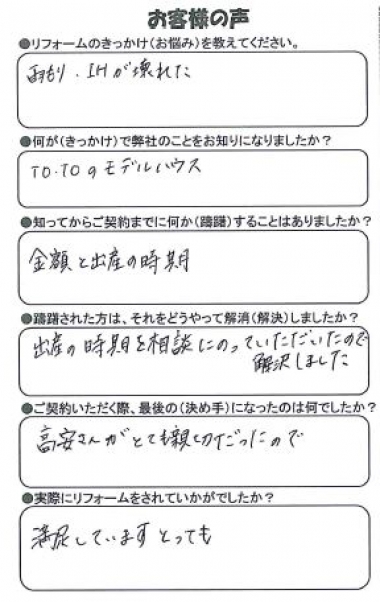 お客様の声
●リフォームのきっかけ(お悩み)を教えてください。
雨もり・IHが壊れた
●何が(きっかけ)で弊社のことをお知りになりましたか?
TO.TOのモデルハウス
●知ってからご契約までに何か(躊躇)することはありましたか?
金額と出産の時期
●躊躇された方は、それをどうやって解消(解決)しましたか?
出産の時期を相談にのっていただいたので
解決しました
●ご契約いただく際、最後の(決め手)になったのは何でしたか?
高安さんがとても親切だったので
●実際にリフォームをされていかがでしたか?
満足しています とっても